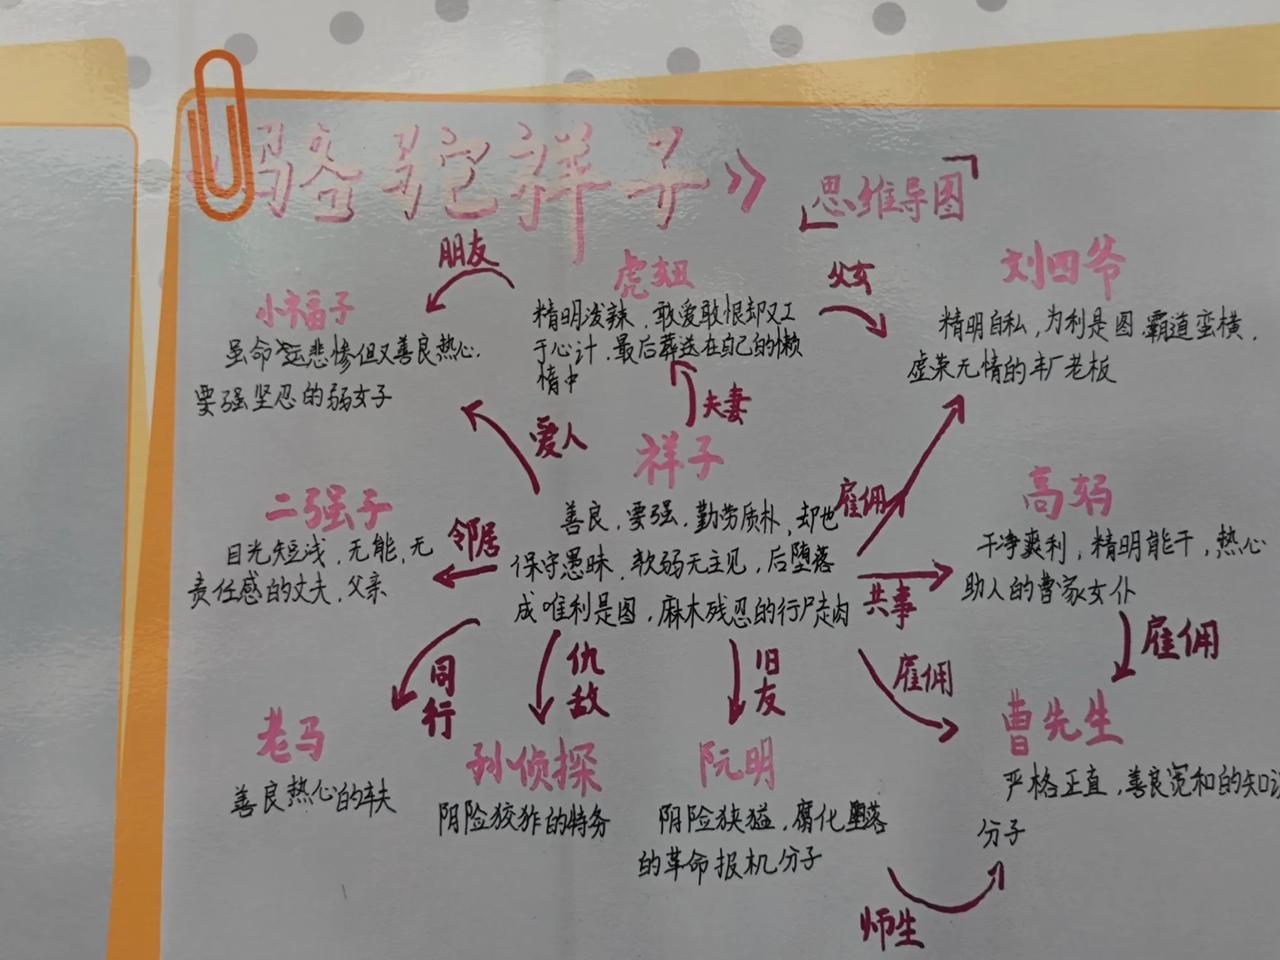 骆驼祥子》
思维导图
朋友
虎妞
父女
刘四爷
小福子
精明泼辣，敢爱敢恨却又工
于心计，最后葬送在自己的懒
惰中
精明自私，为利是图，霸道蛮横，
虚荣无情的车厂老板
虽命运悲惨但又善良热心，
要强坚忍的弱女子
夫妻
爱人
祥子
二强子
目光短浅，无能，无
责任感的丈夫，父亲
邻居
善良，要强，勤劳质朴，却也
保守愚昧，软弱无主见，后堕落
成唯利是图，麻木残忍的行尸走肉
雇佣
高妈
干净爽利，精明能干，热心
助人的曹家女仆
共事
同行
仇敌
旧友
雇佣
雇佣
老马
善良热心的车夫
孙侦探
阴险狡诈的特务
阮明
阴险狭猛，腐化堕落
的革命报机分子
曹先生
严格正直，善良宽和的知识
分子
师生